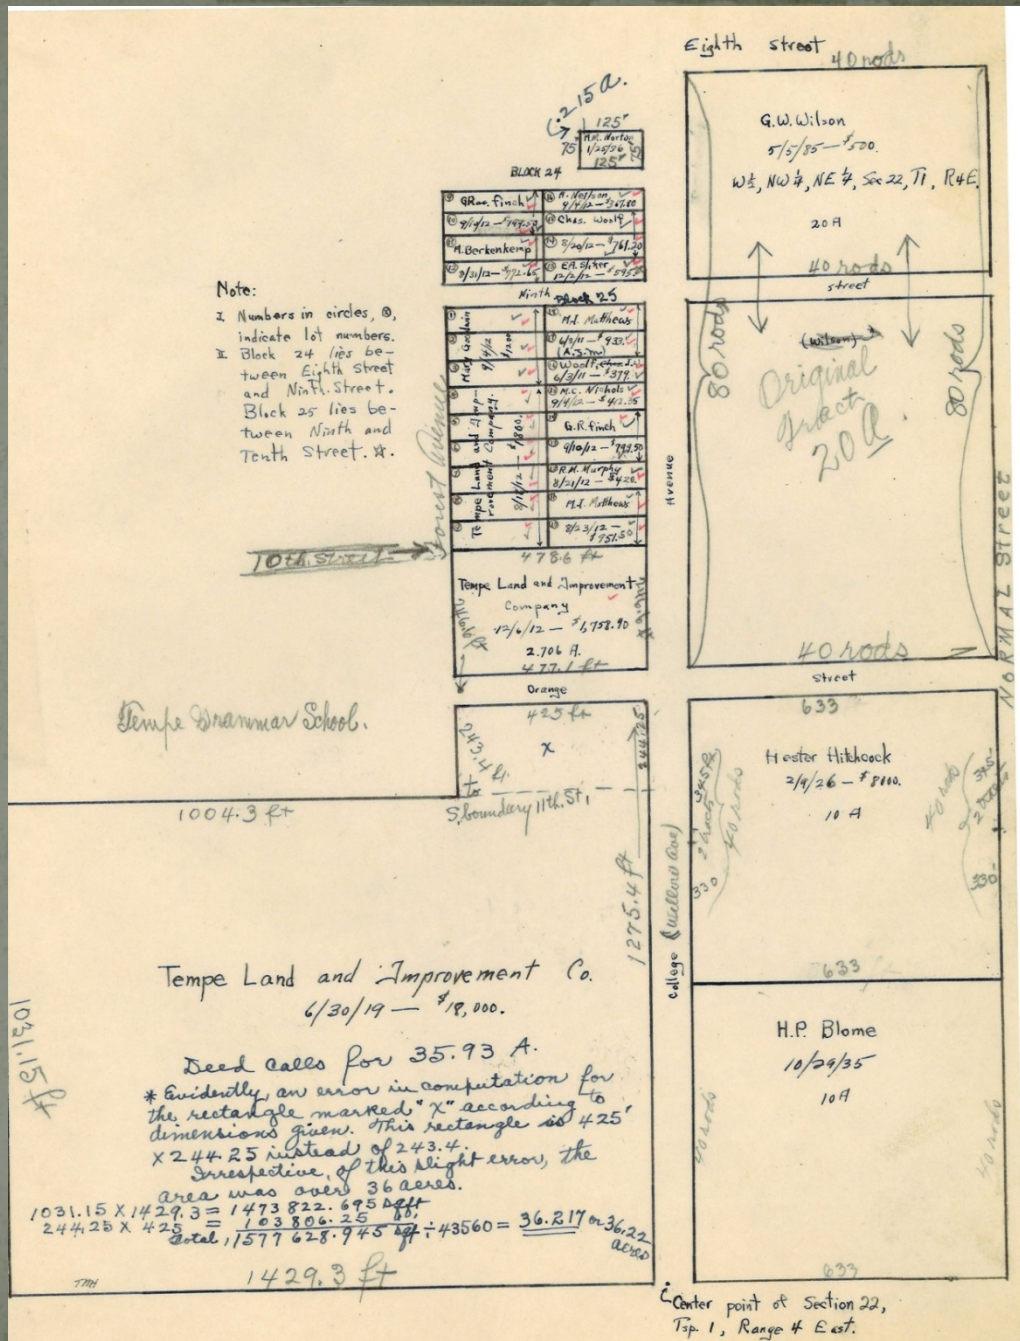 Eighth Street
40 rods
G.W. Wilson
5/5/85 — $500.
W½, NW¼, NE¼, Sec 22, T1, R4E.
20 A
40 rods
street
(.215 a.
125'
75'
H.M. Norton
1/25/36
75'
125'
BLOCK 24
Geo. Finch
9/19/12 — $799.50
M. Berkenkemp
8/31/12 — $772.65
A. Neilson
9/4/12 —
Chas. Woolf
8/20/12 — $761.20
E.A. Sliker
12/2/12 —
Ninth
Block 25
Mary Goodwin
9/4/12
$1200
Tempe Land and Improvement Company.
8/12/12 — $1800.
M.I. Matthews
6/3/11 — $933.
Woolf
6/3/11 — $379.
M.C. Nichols
9/9/12 — $412.35
G.R. Finch
9/10/12 — $799.50
R.M. Murphy
8/21/12 — $420.
M.I. Matthews
8/23/12 —
$951.50
Note:
I Numbers in circles, ⑧,
indicate lot numbers.
II Block 24 lies be-
tween Eighth Street
and Ninth Street.
Block 25 lies be-
tween Ninth and
Tenth Street. ☆.
Forest Avenue
10th Street
478.6 ft
Tempe Land and Improvement
Company
12/6/12 — $1,758.90
2.706 A.
477.1 ft
Orange
Avenue
80 rods
(Wilson)
Original
Tract
20 A.
80 rods
40 rods
Street
NORMAL Street
Tempe Grammar School.
425 ft
X
243.4 ft.
to
S. boundary 11th. St,
244.25
1004.3 ft
1275.4 ft
College (Willow Ave)
633
Hester Hitchcock
2/9/26 — $8000.
10 A
345 ft
2 tracts
330
40 rods
40 rods
345
2 tracts
330
633
H.P. Blome
10/29/35
10 A
40 rods
40 rods
633
Tempe Land and Improvement Co.
6/30/19 — $18,000.
1031.15 ft
Deed calls for 35.93 A.
* Evidently, an error in computation for
the rectangle marked "X" according to
dimensions given. This rectangle is 425'
X 244.25 instead of 243.4.
Irrespective, of this slight error, the
area was over 36 acres.
1031.15 X 1429.3 = 1473822.695 sq ft
244.25 X 425 = 103806.25 do.
Total, 1577628.945 sq ft ÷ 43560 = 36.217 or 36.22
acres
TMH
1429.3 ft
Center point of Section 22,
Tsp. 1, Range 4 East.